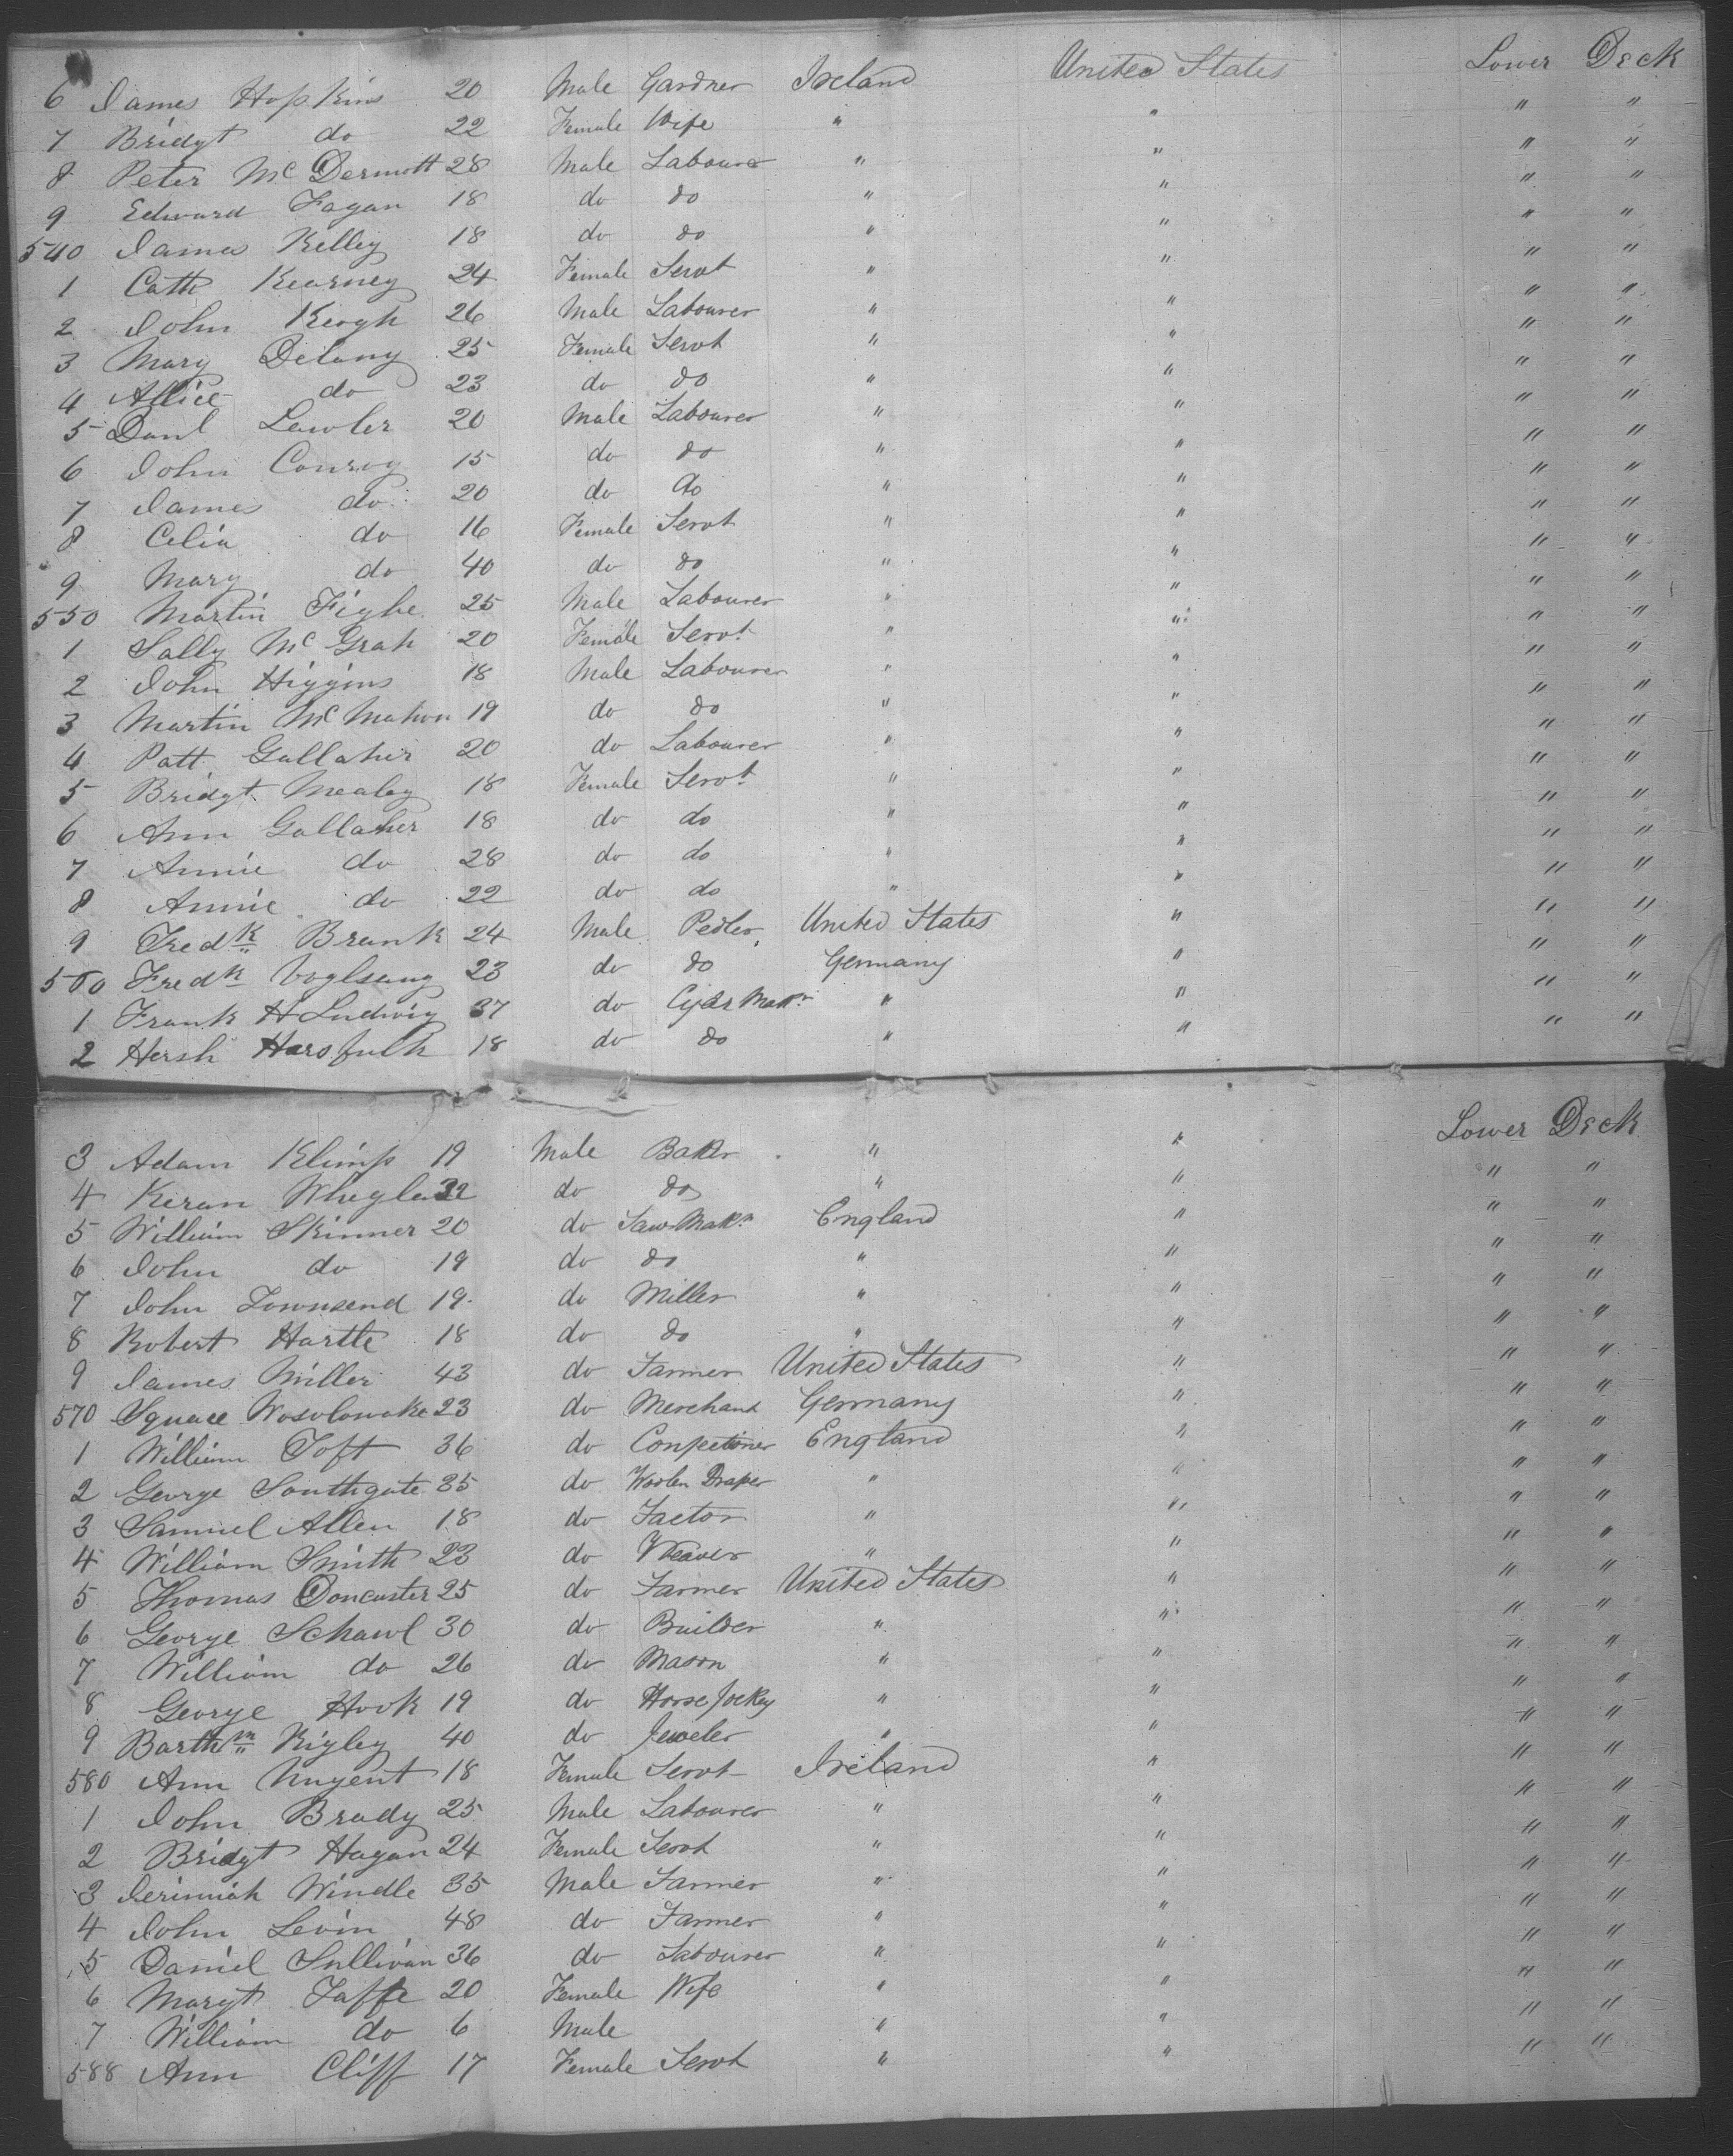 6 James Hopkins 20 Male Gardner Ireland United States Lower Deck
7 Bridgt do 22 Female Wife " " " "
8 Peter McDermott 28 Male Labourer " " " "
9 Edward Fagan 18 do do " " " "
540 James Kelley 18 do do " " " "
1 Cath Kearney 24 Female Servt " " " "
2 John Keogh 26 Male Labourer " " " "
3 Mary Delany 25 Female Servt " " " "
4 Allice do 23 do do " " " "
5 Danl Lawler 20 Male Labourer " " " "
6 John Conroy 15 do do " " " "
7 James do 20 do do " " " "
8 Celia do 16 Female Servt " " " "
9 Mary do 40 do do " " " "
550 Martin Fighe 25 Male Labourer " " " "
1 Sally McGrah 20 Female Servt " " " "
2 John Higgins 18 Male Labourer " " " "
3 Martin McMahon 19 do do " " " "
4 Patt Gallaher 20 do Labourer " " " "
5 Bridgt Mealey 18 Female Servt " " " "
6 Ann Gallaher 18 do do " " " "
7 Annie do 28 do do " " " "
8 Annie do 22 do do " " " "
9 Fredk Brank 24 Male Pedler United States " " "
560 Fredk Voglsang 23 do do Germany " " "
1 Frank H Ludwig 37 do Cigar Makr " " " "
2 Hersh 18 do do " " " "
3 Adam Klimp 19 Male Baker " " Lower Deck
4 Keran 32 do do " " " "
5 William Skinner 20 do Saw Makr England " " "
6 John do 19 do do " " " "
7 John Townsend 19 do Miller " " " "
8 Robert Hartle 18 do do " " " "
9 James Miller 43 do Farmer United States " " "
570 23 do Merchant Germany " " "
1 William Toft 36 do Confetioner England " " "
2 George Southgate 35 do Woolen Draper " " " "
3 Samuel Allen 18 do Factor " " " "
4 William Smith 23 do Weaver " " " "
5 Thomas Doncaster 25 do Farmer United States " " "
6 George Schawl 30 do Builder " " " "
7 William do 26 do Mason " " " "
8 George Hook 19 do Horse Jockey " " " "
9 Barthm Rigley 40 do Jeweler " " " "
580 Ann Nugent 18 Female Servt Ireland " " "
1 John Brady 25 Male Labourer " " " "
2 Bridgt Hagan 24 Female Servt " " " "
3 Jerimiah Windle 35 Male Farmer " " " "
4 John Levin 48 do Farmer " " " "
5 Daniel Sullivan 36 do Labourer " " " "
6 Margt Taffe 20 Female Wife " " " "
7 William do 6 Male " " " "
588 Ann Cliff 17 Female Servt " " " "